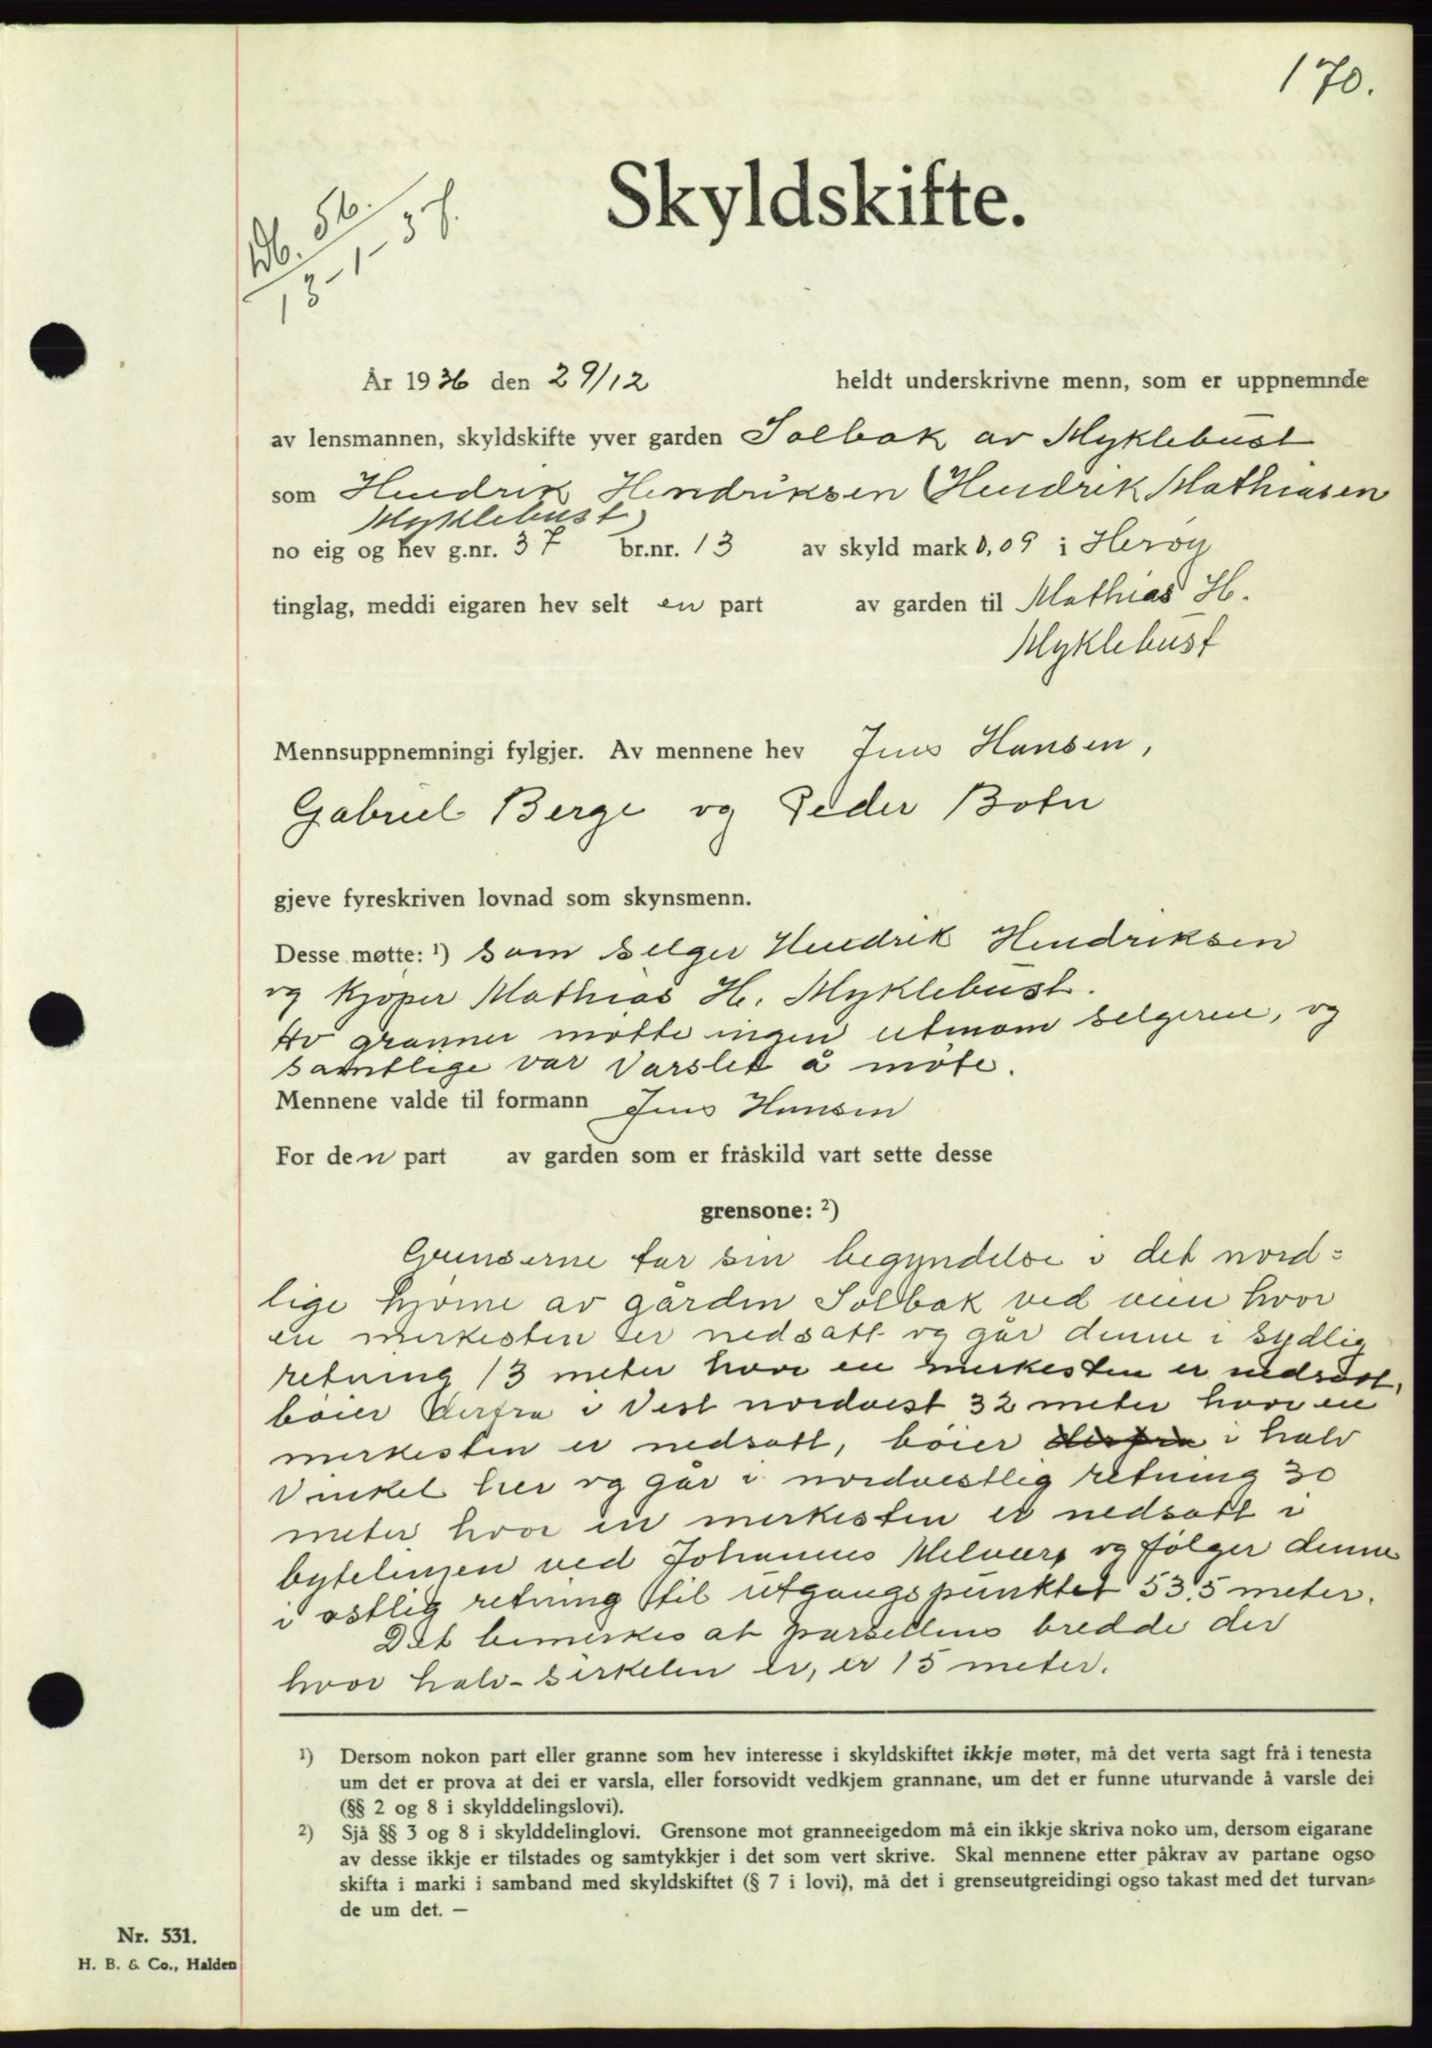 170.
Skyldskifte.
Db. 56.
13-1-37.
År 1936 den 29/12 heldt underskrivne menn, som er uppnemnde
av lensmannen, skyldskifte yver garden Solbak av Myklebust
som Hendrik Hendriksen (Hendrik Mathiasen
Myklebust)
no eig og hev g.nr. 37 br.nr. 13 av skyld mark 0,09 i Herøy
tinglag, meddi eigaren hev selt en part av garden til Mathias H.
Myklebust
Mennsuppnemningi fylgjer. Av mennene hev Jens Hansen,
Gabriel Berge og Peder Botn
gjeve fyreskriven lovnad som skynsmenn.
Desse møtte: ¹) som selger Hendrik Hendriksen
og kjøper Mathias H. Myklebust.
Av granner møtte ingen utenom selgeren, og
samtlige var varslet å møte.
Mennene valde til formann Jens Hansen
For den part av garden som er fråskild vart sette desse
grensone: ²)
Grenserne tar sin begyndelse i det nord-
lige hjørne av gården Solbak ved veien hvor
en merkesten er nedsatt og går denne i sydlig
retning 13 meter hvor en merkesten er nedsatt,
bøier derfra i Vest nordvest 32 meter hvor en
merkesten er nedsatt, bøier derfra i halv
Vinkel her og går i nordvestlig retning 30
meter hvor en merkesten er nedsatt i
bytelinjen ved Johannes Melvær og følger denne
i østlig retning til utgangspunktet 53,5 meter.
Det bemerkes at parsellens bredde der
hvor halv-sirkelen er, er 15 meter.
¹) Dersom nokon part eller granne som hev interesse i skyldskiftet ikkje møter, må det verta sagt frå i tenesta
um det er prova at dei er varsla, eller forsovidt vedkjem grannane, um det er funne uturvande å varsle dei
(§§ 2 og 8 i skylddelingslovi).
²) Sjå §§ 3 og 8 i skylddelinglovi. Grensone mot granneeigedom må ein ikkje skriva noko um, dersom eigarane
av desse ikkje er tilstades og samtykkjer i det som vert skrive. Skal mennene etter påkrav av partane ogso
skifta i marki i samband med skyldskiftet (§ 7 i lovi), må det i grenseutgreidingi ogso takast med det turvan-
de um det. —
Nr. 531.
H. B. & Co., Halden